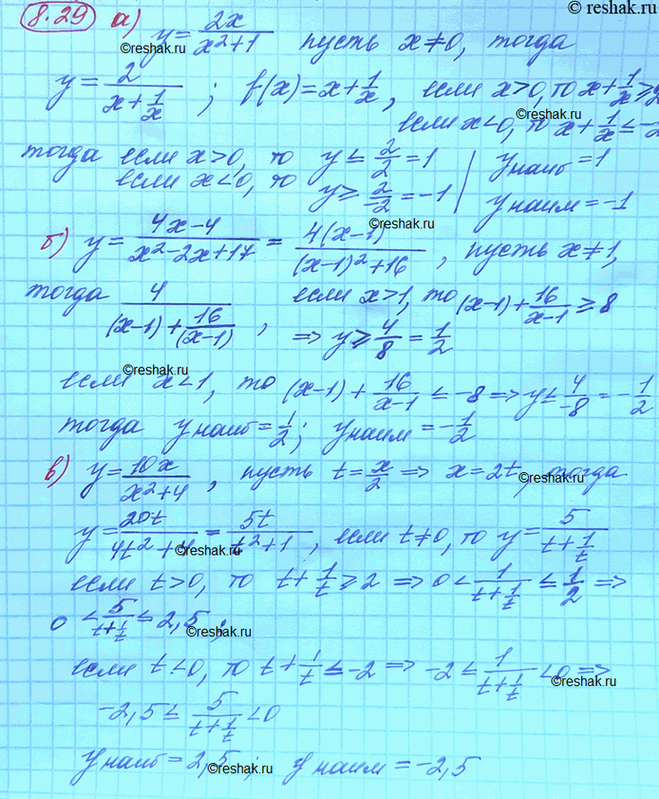 © reshak.ru
8.29 а) y = 2x/(x²+1) пусть x≠0, тогда
©reshak.ru
y = 2/(x + 1/x) ; f(x) = x + 1/x, если x>0, то x + 1/x ≥ 2
если x<0, то x + 1/x ≤ -2
тогда если x>0, то y ≤ 2/2 = 1 | yнаиб = 1
если x<0, то y ≥ 2/-2 = -1 | yнаим = -1
©reshak.ru
б) y = (4x-4)/(x²-2x+17) = 4(x-1)/((x-1)²+16), пусть x≠1,
тогда 4/((x-1) + 16/(x-1)), если x>1, то (x-1) + 16/(x-1) ≥ 8
⇒ y ≥ 4/8 = 1/2
©reshak.ru
если x<1, то (x-1) + 16/(x-1) ≤ -8 ⇒ y ≤ 4/-8 = -1/2
тогда yнаиб = 1/2; yнаим = -1/2
в) y = 10x/(x²+4), пусть t = x/2 ⇒ x = 2t, тогда
©reshak.ru
y = 20t/(4t²+4) = 5t/(t²+1), если t≠0, то y = 5/(t + 1/t)
©reshak.ru
если t>0, то t + 1/t ≥ 2 ⇒ 0 < 1/(t + 1/t) ≤ 1/2 ⇒
0 < 5/(t + 1/t) ≤ 2,5 ;
©reshak.ru
если t<0, то t + 1/t ≤ -2 ⇒ -2 ≤ 1/(t + 1/t) < 0 ⇒
©reshak.ru
-2,5 ≤ 5/(t + 1/t) < 0
yнаиб = 2,5 ; yнаим = -2,5
©reshak.ru